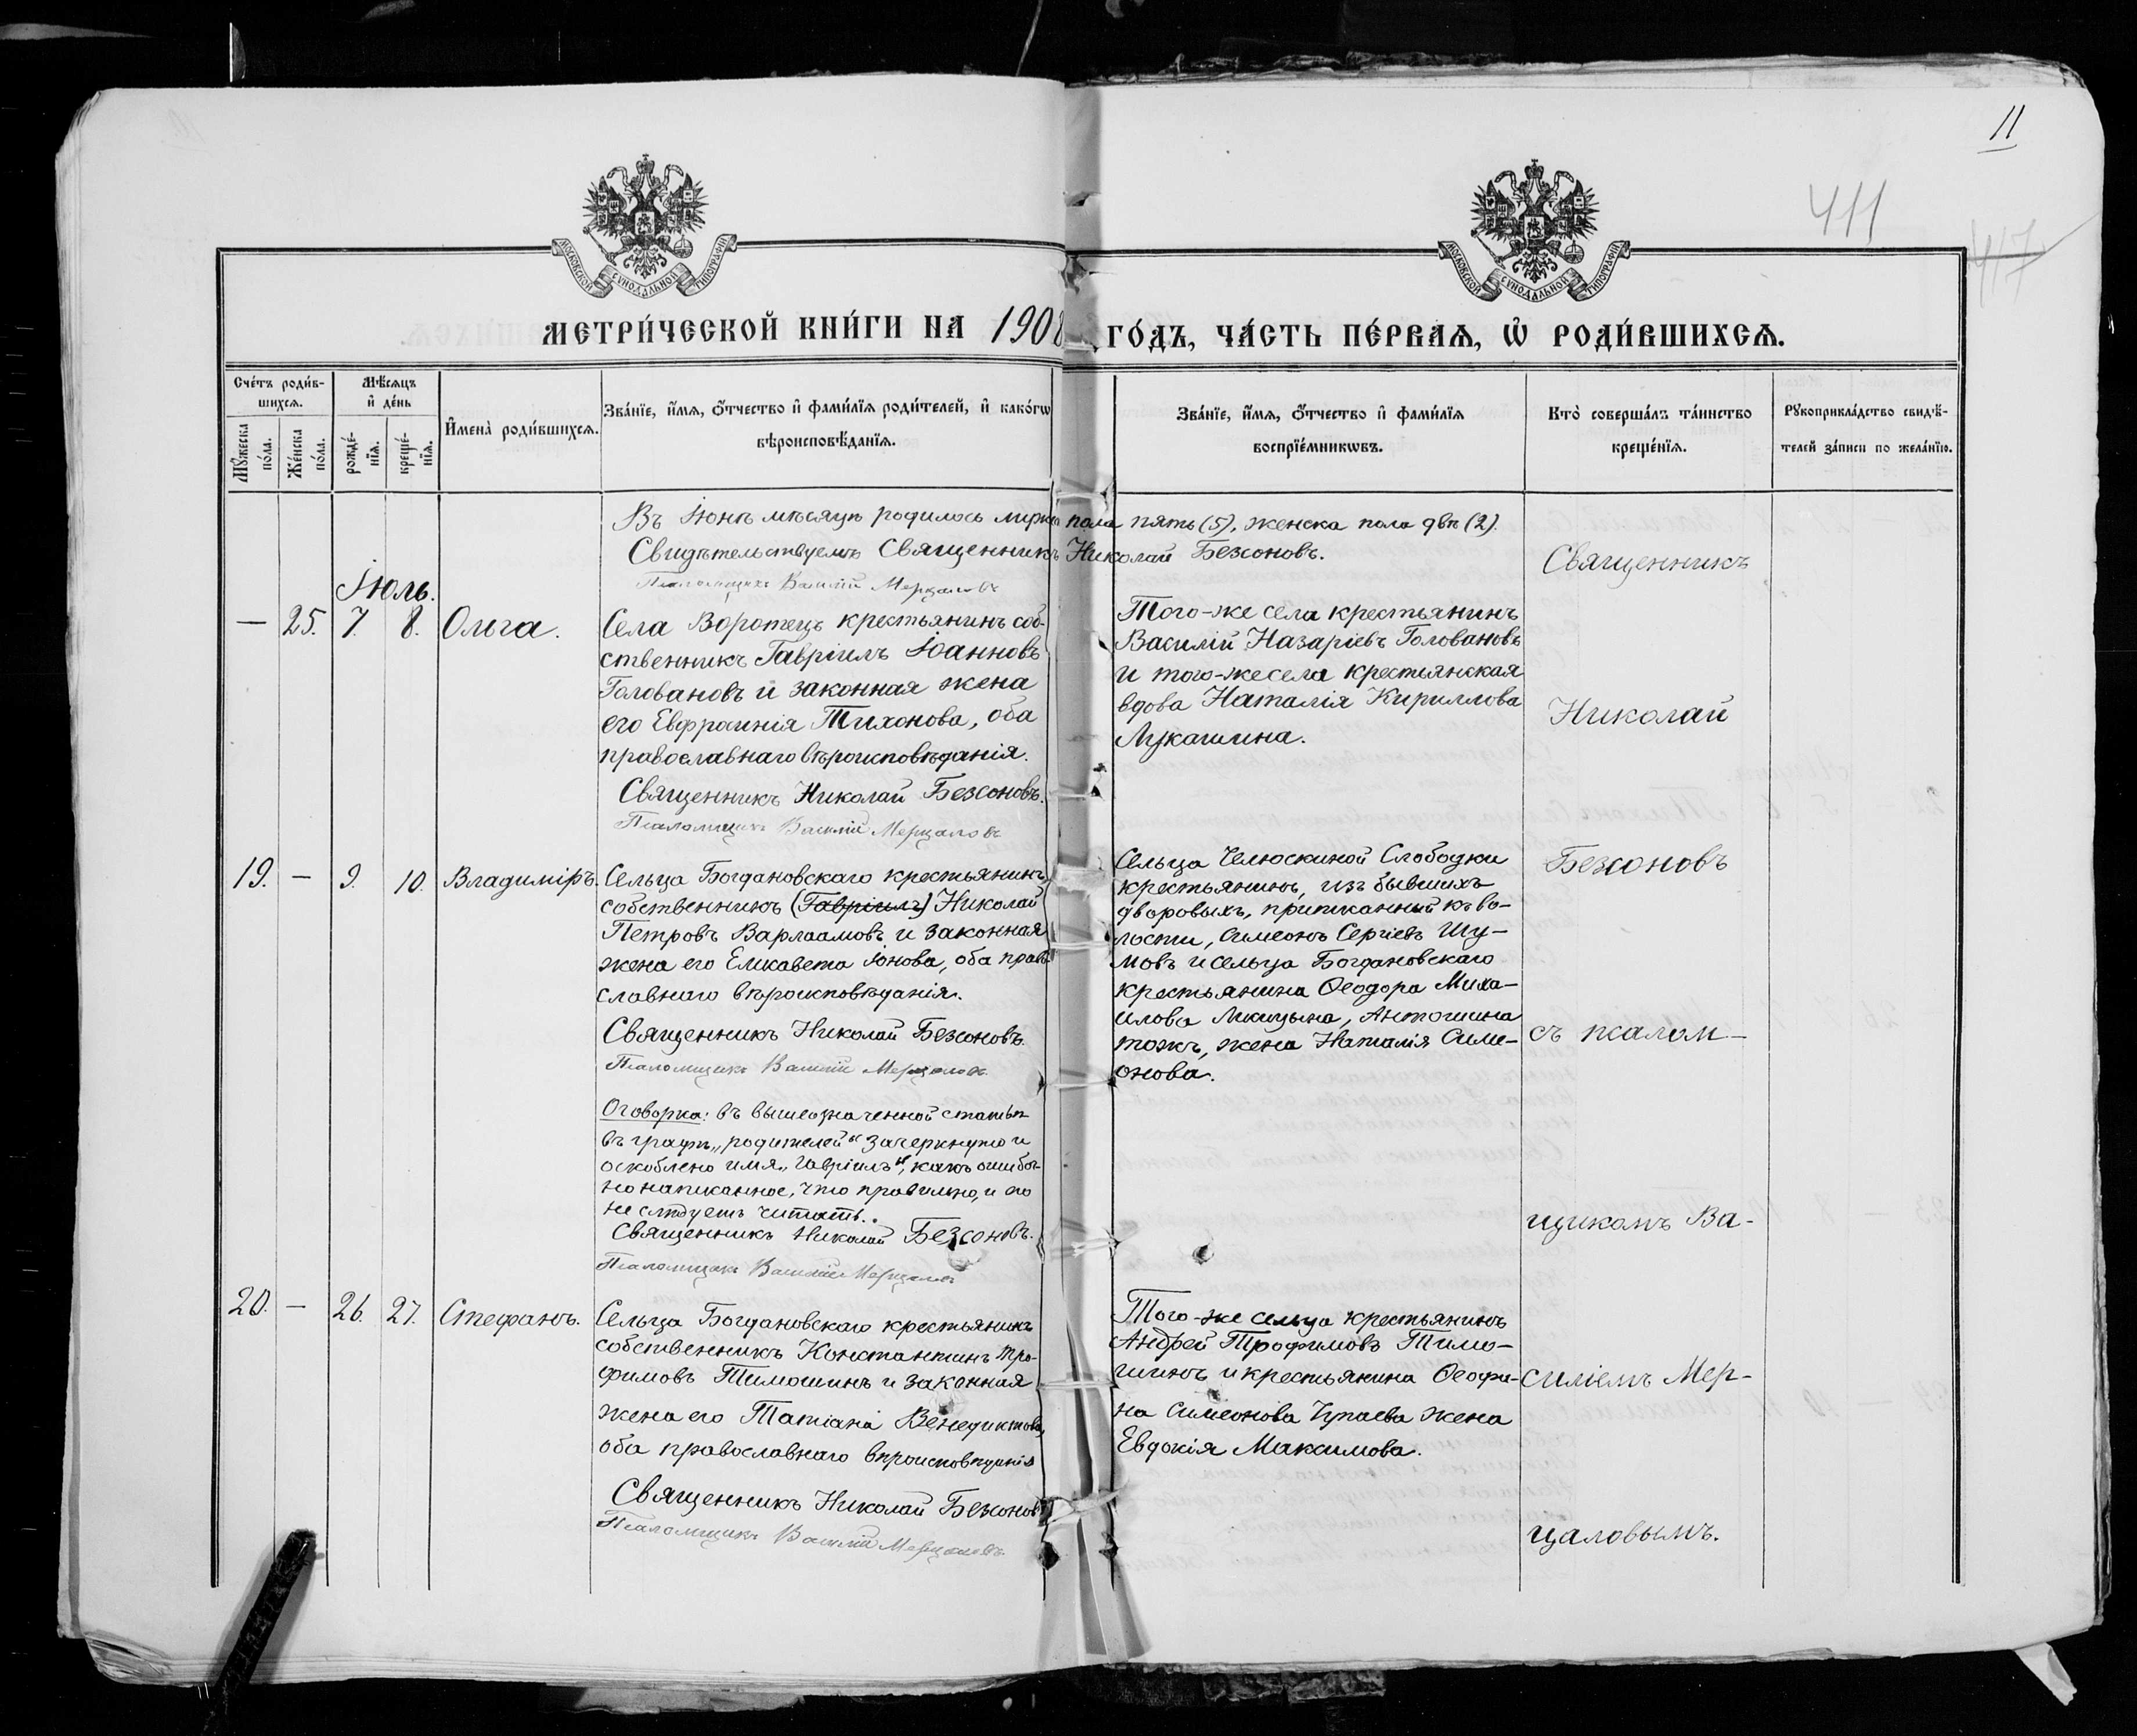 11
411
417
МОСКОВСКОЙ СѴНОДАЛЬНОЙ ТИПОГРАФІИ
МОСКОВСКОЙ СѴНОДАЛЬНОЙ ТИПОГРАФІИ
МЕТРИ́ЧЕСКОЙ КНИ́ГИ НА 1908 ГО́ДЪ, ЧА́СТЬ ПЕ́РВАѦ, Ѡ҆ РОДИ́ВШИХСѦ.
Сче́тъ роди́в-
шихсѧ.
Мꙋ́жеска
по́ла.
Же́нска
по́ла.
Мѣ́сѧцъ
и҆ де́нь
рожде́-
нїѧ.
креще́-
нїѧ.
И҆мена̀ роди́вшихсѧ.
Зва́нїе, и҆́мѧ, ѻ҆́тчество и҆ фами́лїѧ роди́телей, и҆ како́гѡ
вѣроисповѣ́данїѧ.
Зва́нїе, и҆́мѧ, ѻ҆́тчество и҆ фами́лїѧ
воспрїе́мникѡвъ.
Кто̀ соверша́лъ та́инство
креще́нїѧ.
Рꙋкоприкла́дство свидѣ́-
телей за́писи по жела́нїю.
Въ Іюнѣ мѣсяцѣ родилось мужска пола пять (5), женска пола двѣ (2).
Свидѣтельствуемъ Священникъ Николай Безсоновъ.
Псаломщикъ Василій Мерцаловъ
Іюль.
— 25. 7. 8. Ольга.
Села Воротецъ крестьянинъ соб-
ственникъ Гавріилъ Іоанновъ
Головановъ и законная жена
его Евфросинія Тихонова, оба
православнаго вѣроисповѣданія.
Священникъ Николай Безсоновъ.
Псаломщикъ Василій Мерцаловъ
Того-же села крестьянинъ
Василій Назаріевъ Головановъ
и того-же села крестьянская
вдова Наталія Кириллова
Лукашина.
19. — 9. 10. Владиміръ.
Сельца Богдановскаго крестьянинъ
собственникъ (Гавріилъ) Николай
Петровъ Варлаамовъ и законная
жена его Елисавета Іонова, оба право-
славнаго вѣроисповѣданія.
Священникъ Николай Безсоновъ.
Псаломщикъ Василій Мерцаловъ.
Оговорка: въ вышеозначенной статьѣ
въ графѣ „родителей" зачеркнуто и
оскоблено имя „Гавріилъ", какъ ошибоч-
но написанное, что правильно, и его
не слѣдуетъ читать.
Священникъ Николай Безсоновъ.
Псаломщикъ Василій Мерцаловъ
Сельца Челюскиной Слободки
крестьянинъ, изъ бывшихъ
дворовыхъ, приписанный къ во-
лости, Симеонъ Сергіевъ Шу-
мовъ и сельца Богдановскаго
крестьянина Ѳеодора Миха-
илова Антошина
тожъ, жена Наталія Симе-
онова.
20. — 26. 27. Стефанъ.
Сельца Богдановскаго крестьянинъ
собственникъ Константинъ Тро-
фимовъ Тимошинъ и законная
жена его Татіана Венедиктова,
оба православнаго вѣроисповѣданія
Священникъ Николай Безсоновъ
Псаломщикъ Василій Мерцаловъ.
Того-же сельца крестьянинъ
Андрей Трофимовъ Тимо-
шинъ и крестьянина Ѳеофа-
на Симеонова жена
Евдокія Максимова.
Священникъ
Николай
Безсоновъ
съ псалом-
щикомъ Ва-
силіемъ Мер-
цаловымъ.